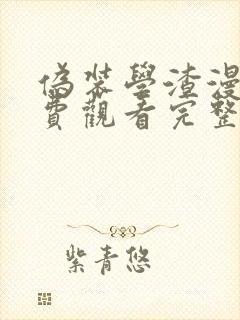 偽裝學渣漫
費觀看完整
紫青悠